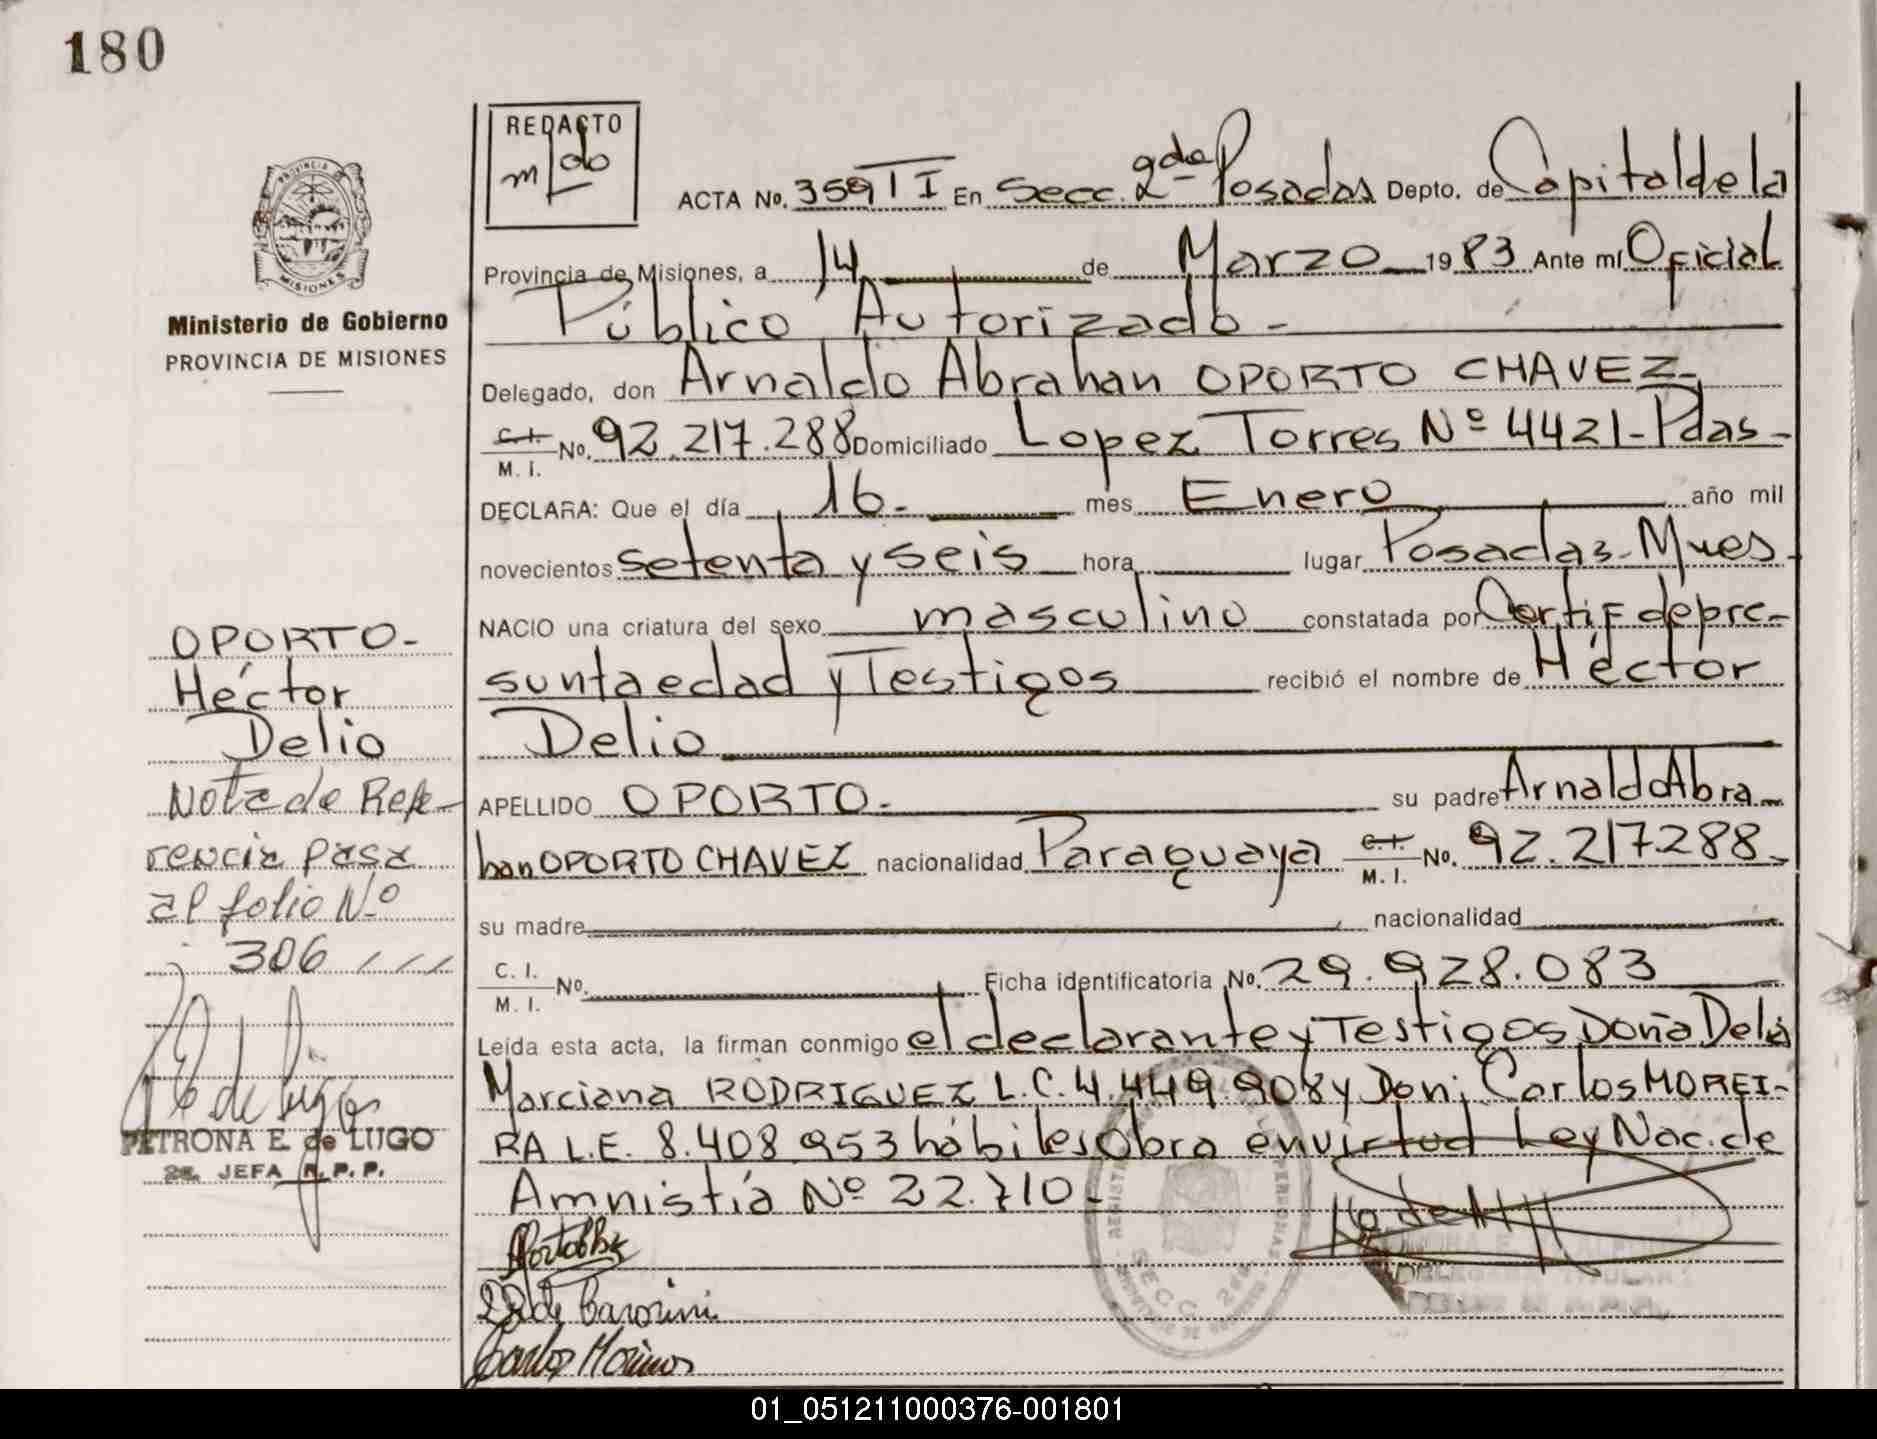 180
REDACTO
ACTA No. 359 TI En Secc. 2da Posadas Depto. de Capital de la
Provincia de Misiones, a 14 de Marzo 1983 Ante mí Oficial
Público Autorizado -
Delegado, don Arnaldo Abrahan OPORTO CHAVEZ -
C.I. / M. I. No. 92.217.288 Domiciliado Lopez Torres Nº 4421 - Pdas -
DECLARA: Que el día 16 - mes Enero año mil
novecientos setenta y seis hora lugar Posadas - Mnes -
NACIO una criatura del sexo masculino constatada por Certif de pre-
sunta edad y Testigos recibió el nombre de Héctor
Delio
APELLIDO OPORTO - su padre Arnaldo Abra
han OPORTO CHAVEZ nacionalidad Paraguaya C.I. / M. I. No. 92.217.288 -
su madre nacionalidad
C. I. / M. I. No. Ficha identificatoria No. 29.928.083
Leída esta acta, la firman conmigo el declarante y Testigos Doña Delia
Marciana RODRIGUEZ L.C. 4.449.908 y Don: Carlos MOREI-
RA L.E. 8.408 953 hábiles Obra en virtud Ley Nac. de
Amnistía Nº 22.710 -
PROVINCIA
MISIONES
Ministerio de Gobierno
PROVINCIA DE MISIONES
OPORTO -
Héctor
Delio
Nota de Refe-
rencia pasa
al folio Nº
306
PETRONA E. de LUGO
2a. JEFA R. P. P.
SECC 2da
Carlos
01_051211000376-001801